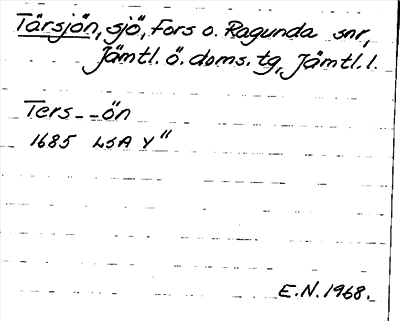 Tärsjön, sjö, Fors o. Ragunda snr,
Jämtl. ö. doms. tg, Jämtl. l.
Ters--ön
1685 LSA Y"
E.N. 1968.